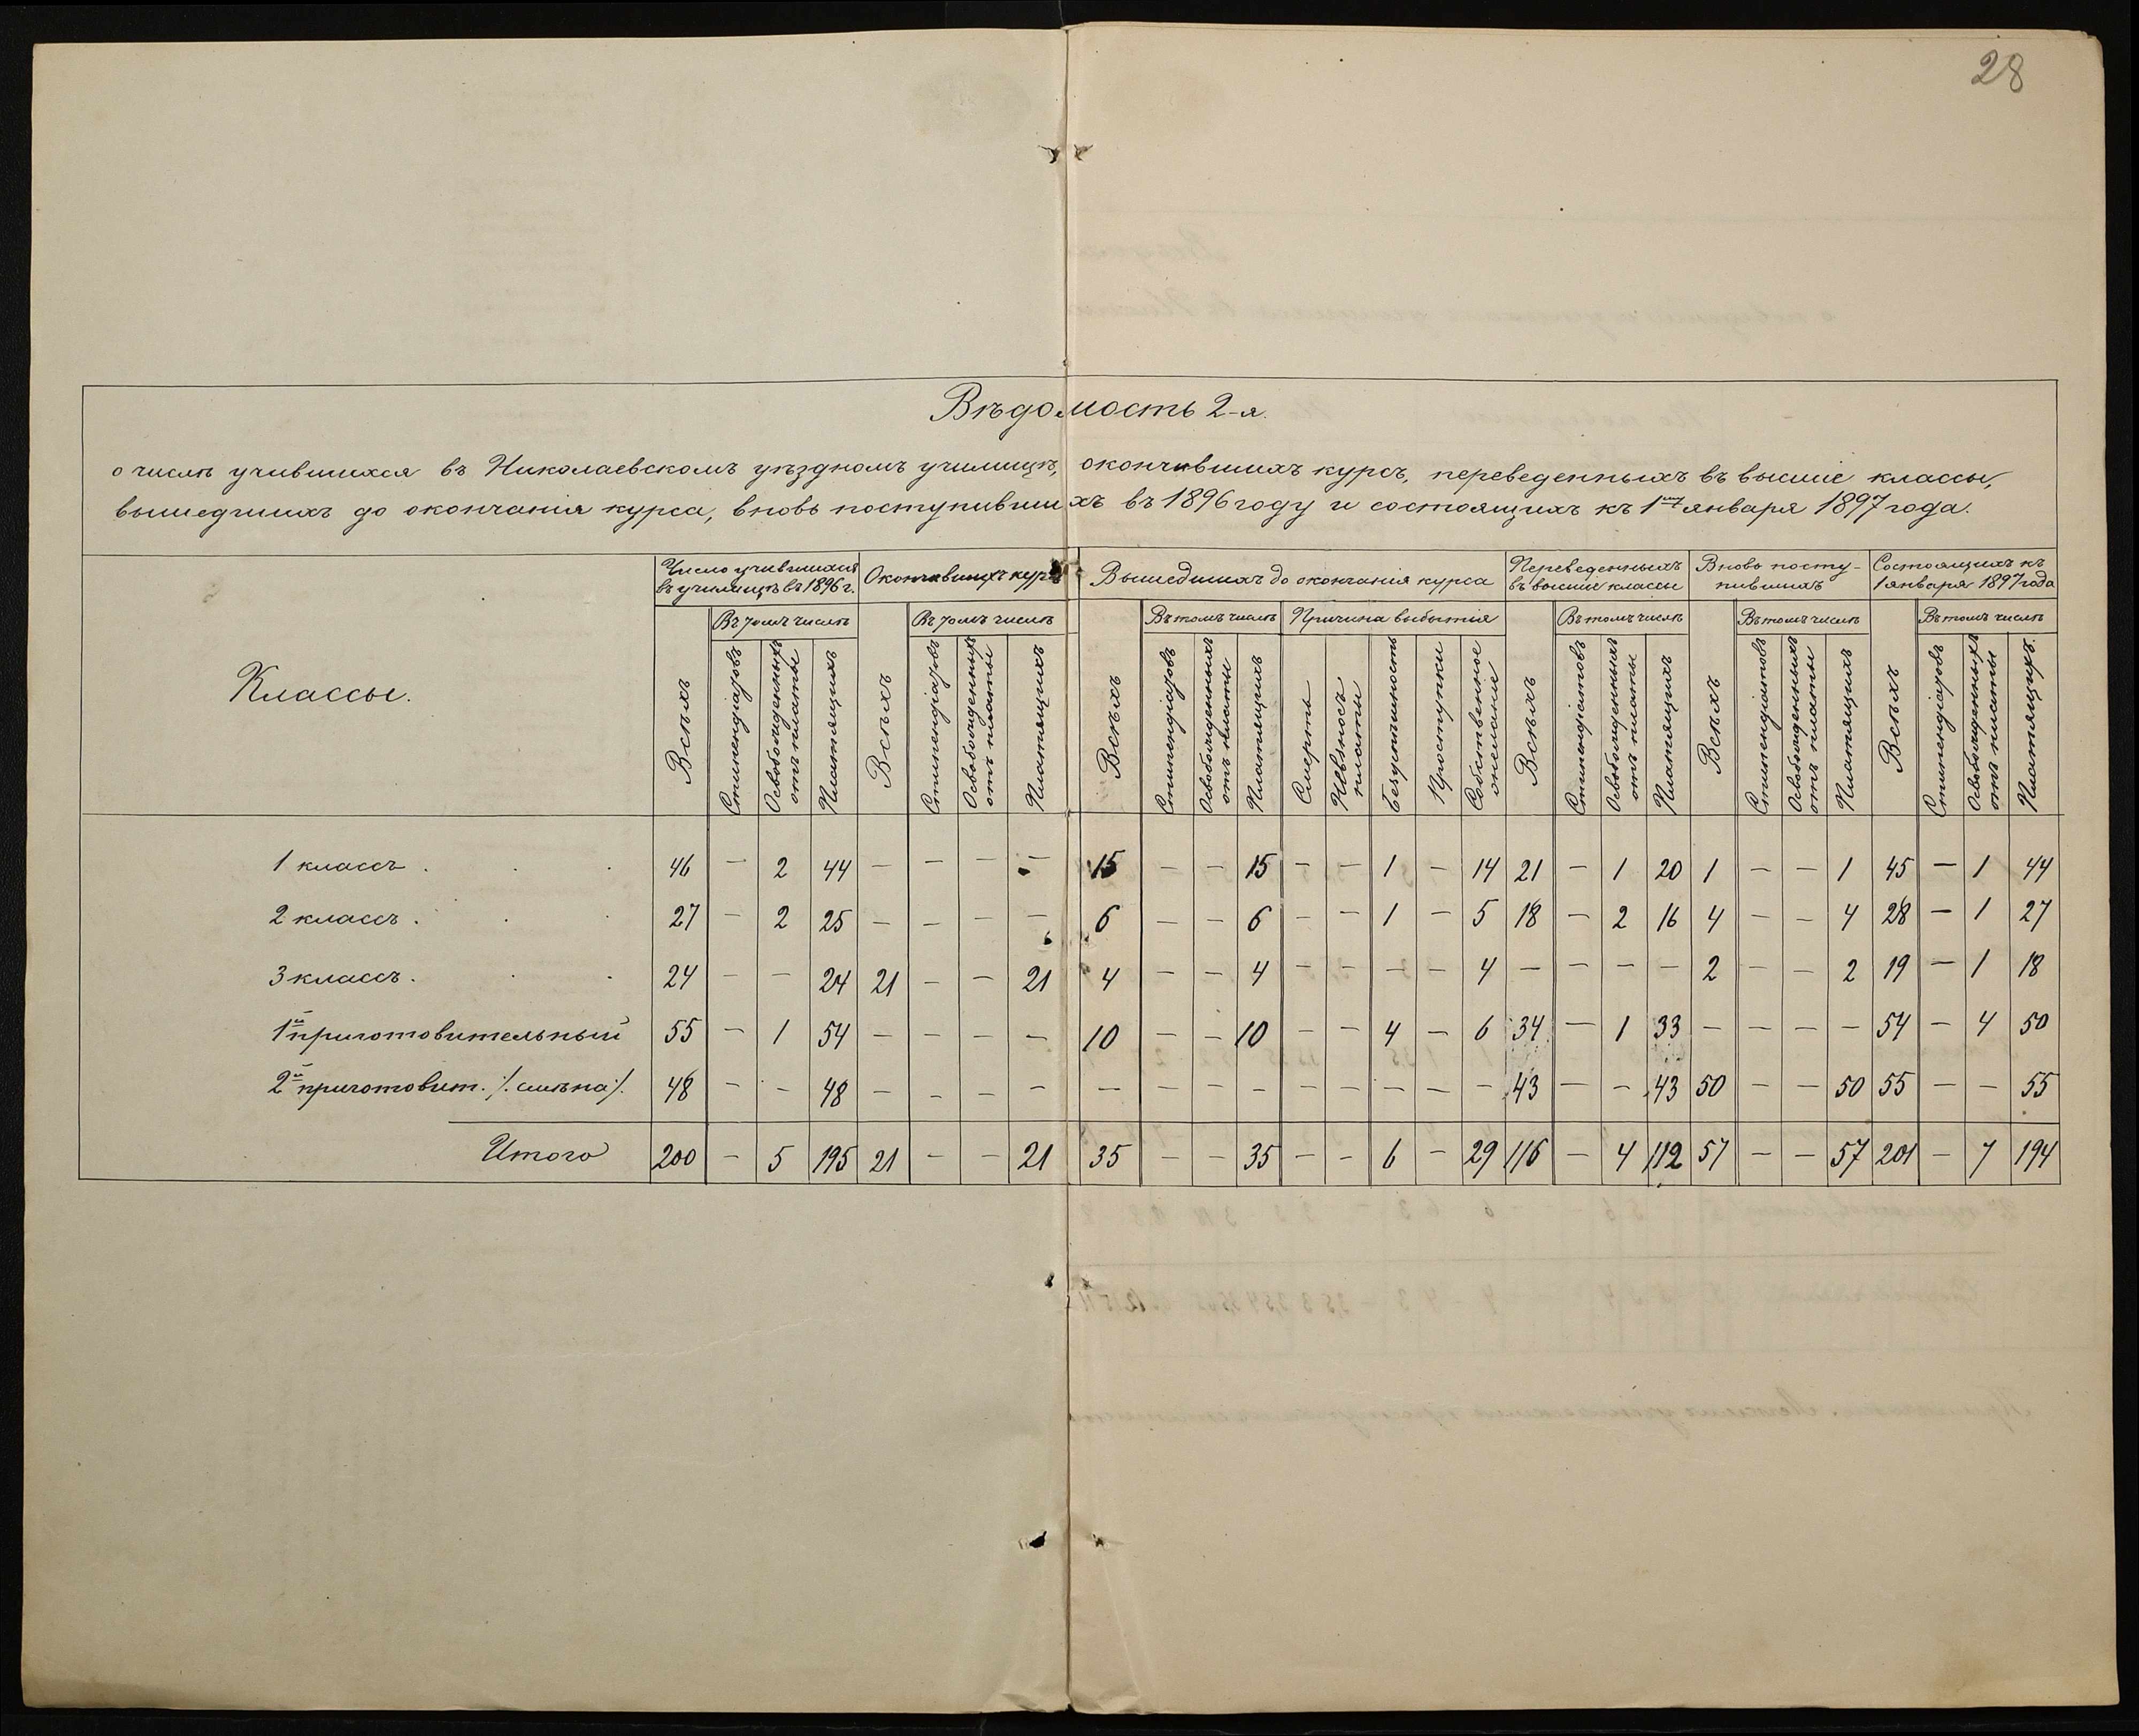 28
Вѣдомость 2-я.
о числѣ учившихся въ Николаевскомъ уѣздномъ училищѣ, окончившихъ курсъ, переведенныхъ въ высшіе классы,
вышедшихъ до окончанія курса, вновь поступившихъ въ 1896 году и состоящихъ къ 1му января 1897 года.
Классы.
Число учившихся
въ училищѣ въ 1896 г.
Окончившихъ курсъ
Вышедшихъ до окончанія курса
Переведенныхъ
въ высшіе классы
Вновь посту-
пившихъ
Состоящихъ къ
1 января 1897 года
Въ томъ числѣ
Въ томъ числѣ
Въ томъ числѣ
Причина выбытія
Въ томъ числѣ
Въ томъ числѣ
Въ томъ числѣ
Всѣхъ
Стипендіатовъ
Освобожденныхъ
отъ платы
Платящихъ
Всѣхъ
Стипендіатовъ
Освобожденныхъ
отъ платы
Платящихъ
Всѣхъ
Стипендіатовъ
Освобожденныхъ
отъ платы
Платящихъ
Смерть
Невзносъ
платы
Безуспѣшность
Проступки
Собственное
желаніе
Всѣхъ
Стипендіатовъ
Освобожденныхъ
отъ платы
Платящихъ
Всѣхъ
Стипендіатовъ
Освобожденныхъ
отъ платы
Платящихъ
Всѣхъ
Стипендіатовъ
Освобожденныхъ
отъ платы
Платящихъ.
1 классъ . . . 46 — 2 44 — — — — 15 — — 15 — — 1 — 14 21 — 1 20 1 — — 1 45 — 1 44
2 классъ . . . 27 — 2 25 — — — — 6 — — 6 — — 1 — 5 18 — 2 16 4 — — 4 28 — 1 27
3 классъ . . . 24 — — 24 21 — — 21 4 — — 4 — — — — 4 — — — — 2 — — 2 19 — 1 18
1й приготовительный 55 — 1 54 — — — — 10 — — 10 — — 4 — 6 34 — 1 33 — — — — 54 — 4 50
2й приготовит. /. смѣна /. 48 — — 48 — — — — — — — — — — — — — 43 — — 43 50 — — 50 55 — — 55
Итого 200 — 5 195 21 — — 21 35 — — 35 — — 6 — 29 116 — 4 112 57 — — 57 201 — 7 194